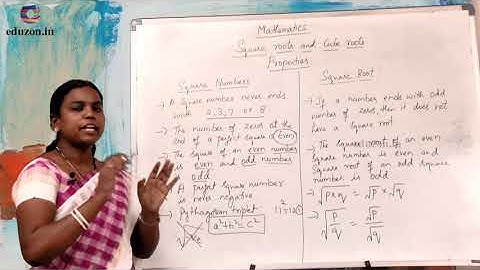 eduzon.in
Mathematics
Square roots and Cube roots
Properties
Square Numbers
→ A Square number never ends
with 2, 3, 7 or 8
→ The number of zeros at the
end of a perfect square is Even
→ The square of an even number
is even and odd number
is odd
→ A perfect square number
is never negative
→ Pythagorean triplet
a²+b²=c²
Square Root
→ If a number ends with odd
number of zeros, then it does not
have a square root
→ The square root of an even
square number is even and
Square root of an odd square
number is odd
→ √p×q = √p × √q
→ √p/q = √p/√q